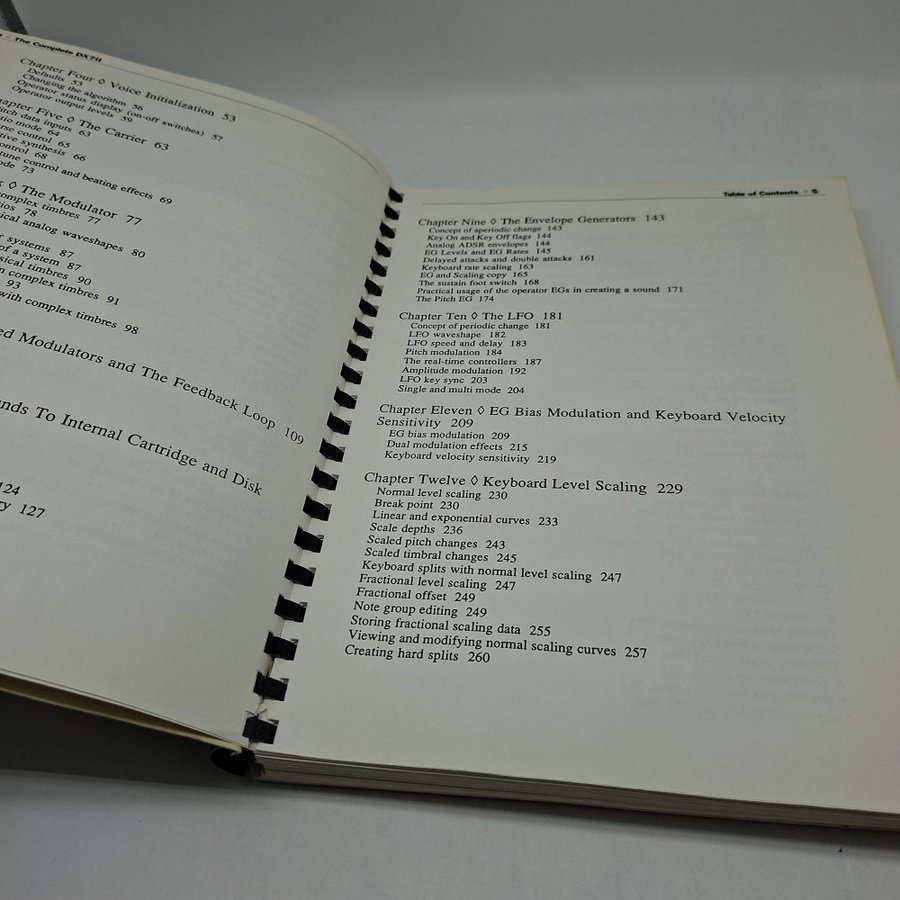 The Complete DX7II
Chapter Four ◊ Voice Initialization 53
Defaults 53
Changing the algorithm 56
Operator status display (on-off switches) 57
Operator output levels 59
Chapter Five ◊ The Carrier 63
Pitch data inputs 63
mode 64
control 65
synthesis 66
control 68
tune control and beating effects 69
73
◊ The Modulator 77
complex timbres 77
78
analog waveshapes 80
systems 87
of a system 87
timbres 90
complex timbres 91
93
with complex timbres 98
Modulators and The Feedback Loop 109
To Internal Cartridge and Disk
124
127
Table of Contents ◊ 5
Chapter Nine ◊ The Envelope Generators 143
Concept of aperiodic change 143
Key On and Key Off flags 144
Analog ADSR envelopes 144
EG Levels and EG Rates 145
Delayed attacks and double attacks 161
Keyboard rate scaling 163
EG and Scaling copy 165
The sustain foot switch 168
Practical usage of the operator EGs in creating a sound 171
The Pitch EG 174
Chapter Ten ◊ The LFO 181
Concept of periodic change 181
LFO waveshape 182
LFO speed and delay 183
Pitch modulation 184
The real-time controllers 187
Amplitude modulation 192
LFO key sync 203
Single and multi mode 204
Chapter Eleven ◊ EG Bias Modulation and Keyboard Velocity
Sensitivity 209
EG bias modulation 209
Dual modulation effects 215
Keyboard velocity sensitivity 219
Chapter Twelve ◊ Keyboard Level Scaling 229
Normal level scaling 230
Break point 230
Linear and exponential curves 233
Scale depths 236
Scaled pitch changes 243
Scaled timbral changes 245
Keyboard splits with normal level scaling 247
Fractional level scaling 247
Fractional offset 249
Note group editing 249
Storing fractional scaling data 255
Viewing and modifying normal scaling curves 257
Creating hard splits 260